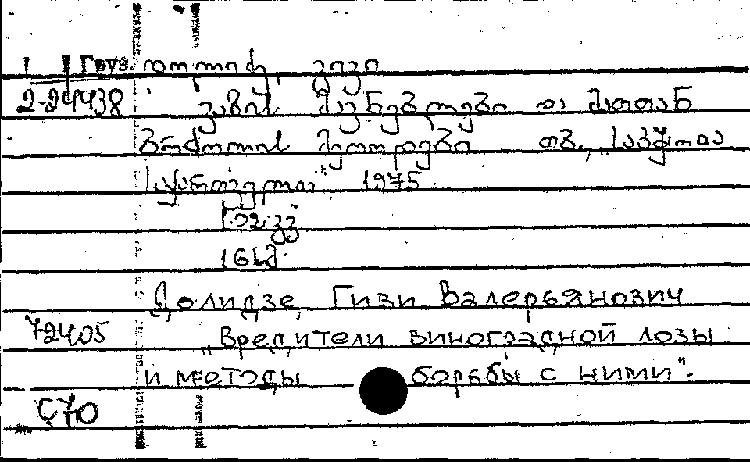 Груз. დოლიძე, გივი
2-24438 ვაზის მავნებლები და მათთან
ბრძოლის მეთოდები თბ., „საბჭოთა
საქართველო" 1975
102 გვ
Долидзе, Гиви Валерьянович
72405 „Вредители виноградной лозы
и методы борьбы с ними".
С70